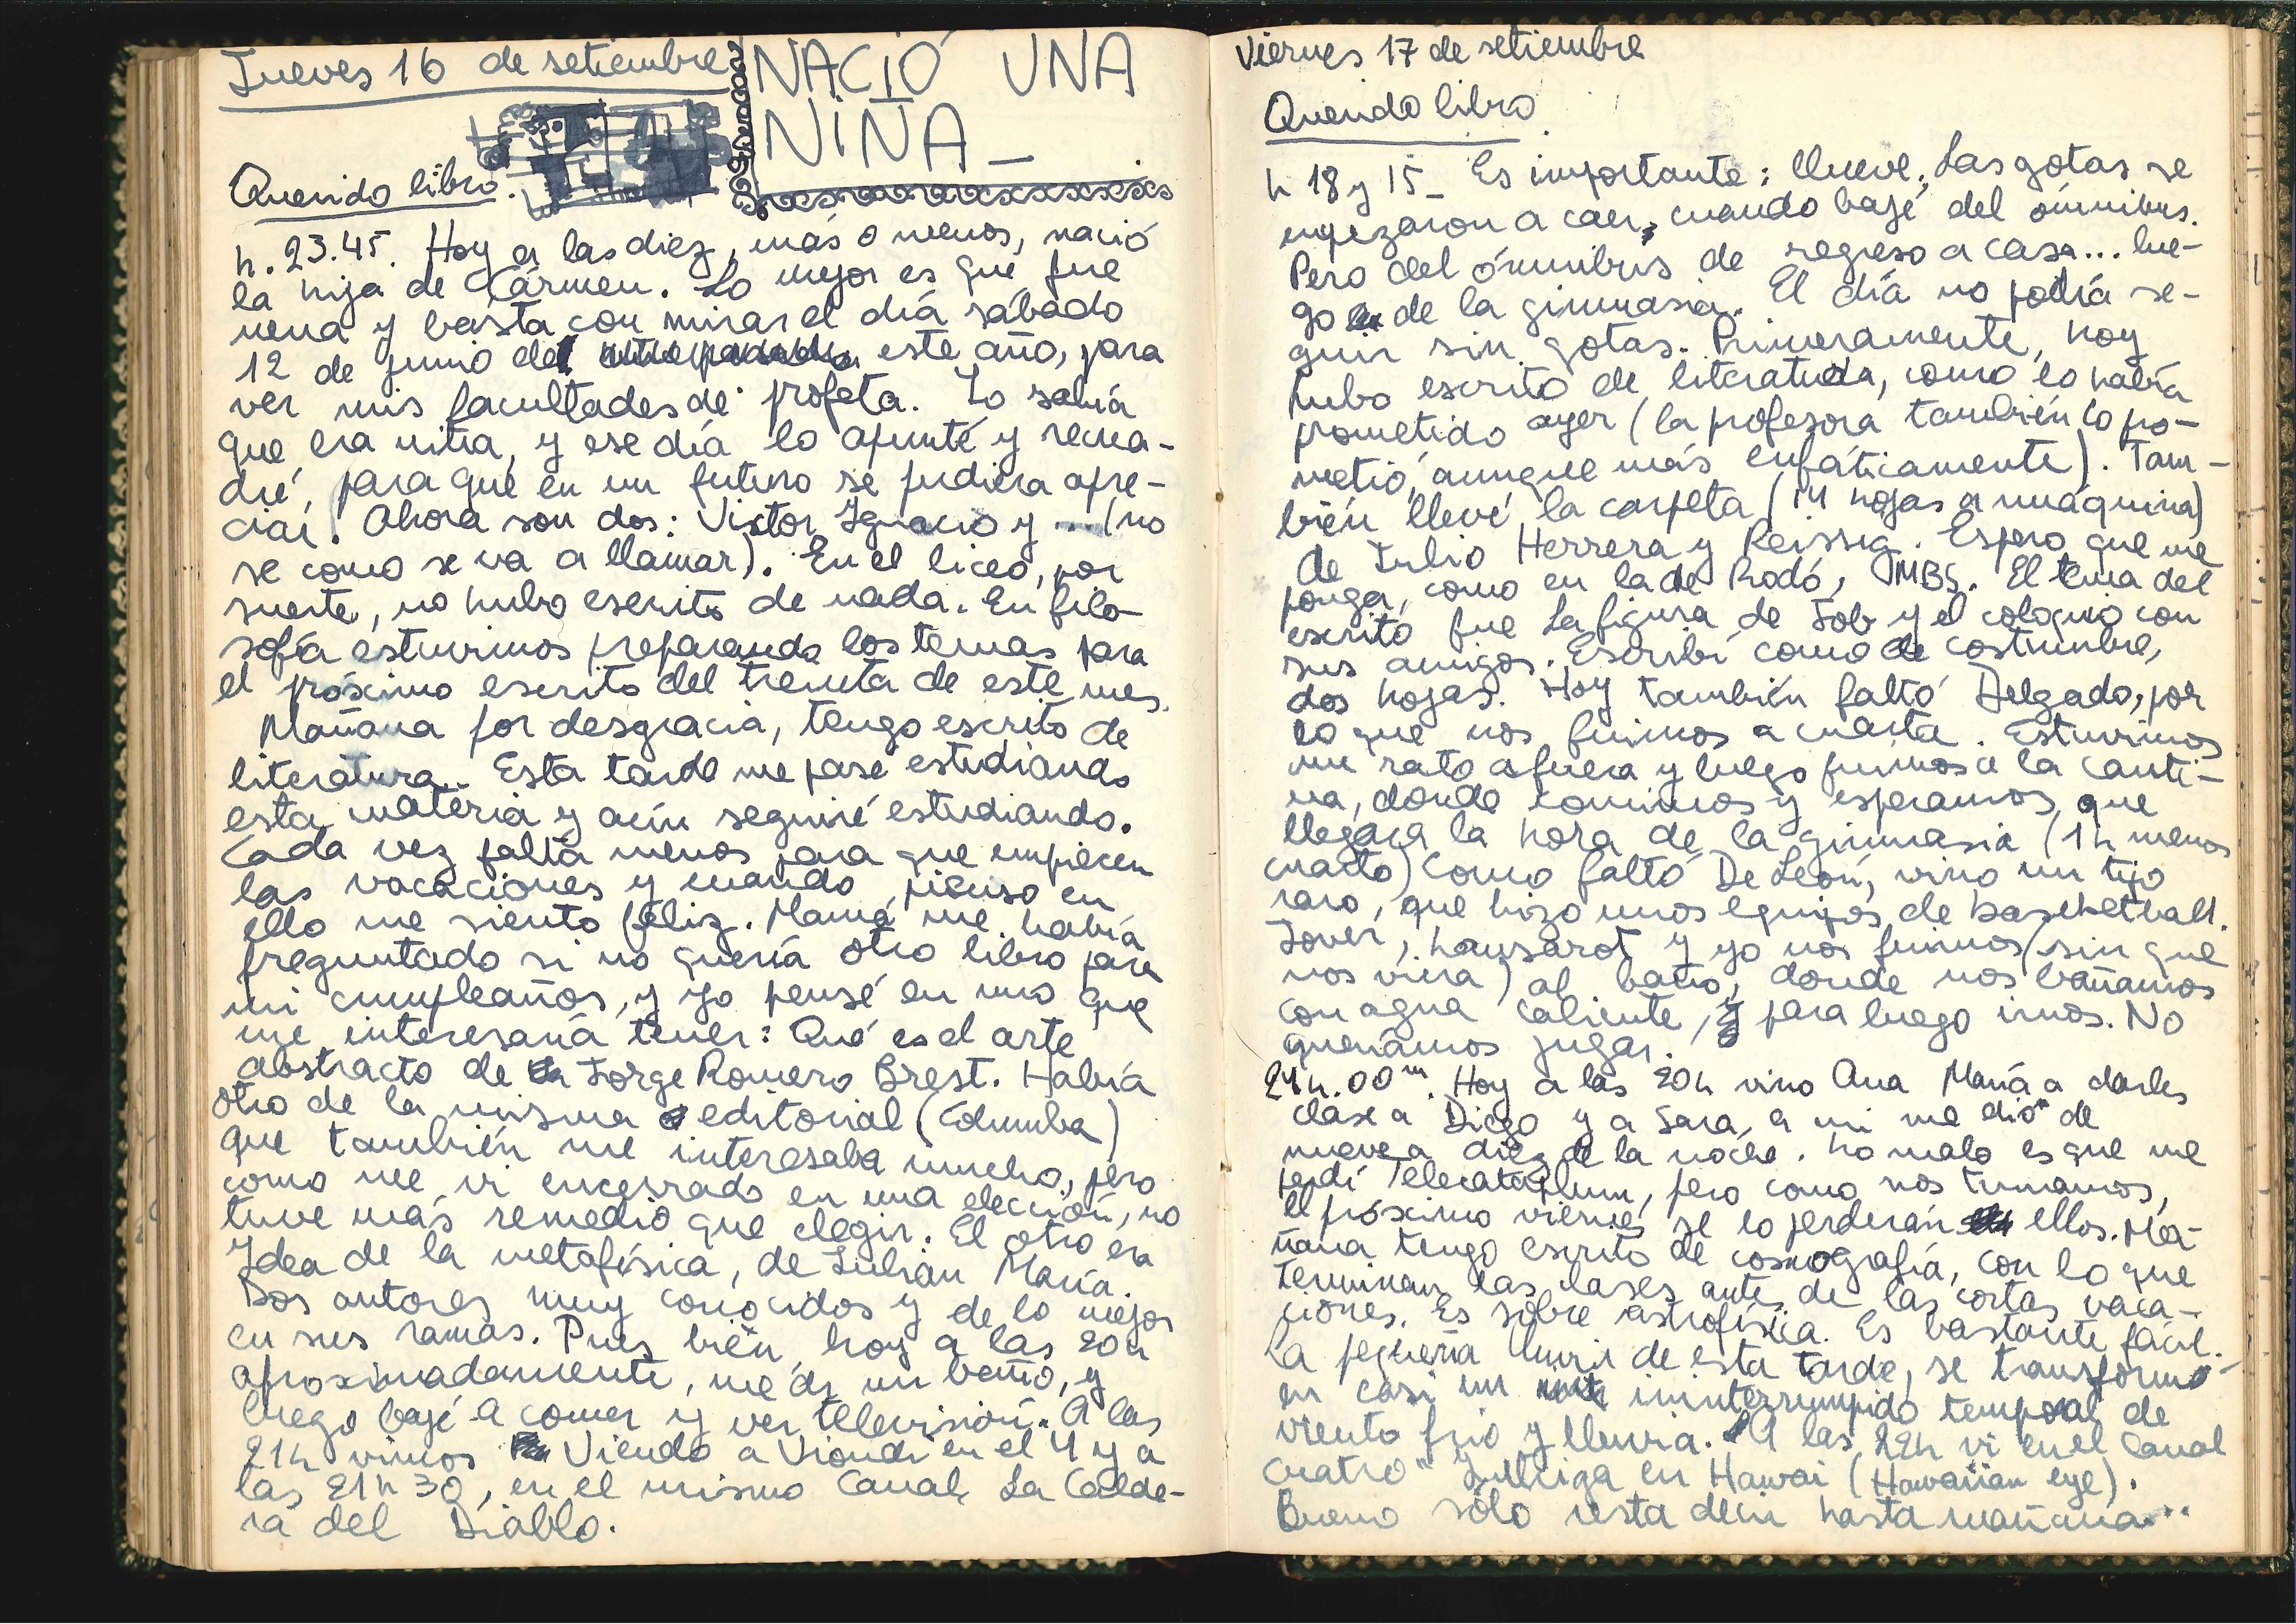 Jueves 16 de setiembre
NACIÓ UNA
NIÑA_
Querido libro.
h. 23.45. Hoy a las diez, más o menos, nació
la hija de Cármen. Lo mejor es que fue
nena y basta con mirar el día sábado
12 de junio de este año, para
ver mis facultades de profeta. Yo sabía
que era niña, y ese día lo apunté y recua-
dré, para que en un futuro se pudiera apre-
ciar. Ahora son dos: Víctor Ignacio y ... (no
se como se va a llamar). En el liceo, por
suerte, no hubo escrito de nada. En filo-
sofía estuvimos preparando los temas para
el próximo escrito del treinta de este mes.
Mañana por desgracia, tengo escrito de
literatura. Esta tarde me pasé estudiando
esta materia y aún seguiré estudiando.
Cada vez falta menos para que empiecen
las vacaciones y cuando pienso en
ello me siento feliz. Mamá me había
preguntado si no quería otro libro para
mi cumpleaños, y yo pensé en uno que
me interesaría tener: Qué es el arte
abstracto de Jorge Romero Brest. Había
otro de la misma editorial (Columba)
que también me interesaba mucho, pero
como me vi encerrado en una elección, no
tuve más remedio que elegir. El otro era
Idea de la metafísica, de Julián María.
Dos autores muy conocidos y de lo mejor
en sus ramas. Pues bién, hoy a las 20h
aproximadamente, me dí un baño, y
luego bajé a comer y ver televisión. A las
21h vimos Viendo a Viondi en el 4 y a
las 21h 30, en el mismo Canal, La Calde-
ra del Diablo.
Viernes 17 de setiembre
Querido libro
h 18 y 15_ Es importante: llueve. Las gotas se
empezaron a caer, cuando bajé del ómnibus.
Pero del ómnibus de regreso a casa... lue-
go de la gimnasia. El día no podía se-
guir sin gotas. Primeramente, hoy
hubo escrito de literatura, como lo había
prometido ayer (la profesora también lo pro-
metió, aunque más enfáticamente). Tam-
bién llevé la carpeta (14 hojas a máquina)
de Julio Herrera y Reissig. Espero que me
ponga, como en la de Rodó, MBS. El tema del
escrito fue La figura de Job y el coloquio con
sus amigos. Escribí como de costumbre,
dos hojas. Hoy también faltó Delgado, por
lo que nos fuimos a cuarta. Estuvimos
un rato afuera y luego fuimos a la canti-
na, donde comimos y esperamos que
llegara la hora de la gimnasia (1h menos
cuarto) Como faltó De León, vino un tipo
raro, que hizo unos equipos de basketball.
Jover, y yo nos fuimos (sin que
nos viera) al baño, donde nos bañamos
con agua caliente, y para luego irnos. No
queríamos jugar.
24h.00m. Hoy a las 20h vino Ana María a darles
clase a Diego y a Sara, a mi me dió de
nueve a diez de la noche. Lo malo es que me
perdí Telecataplum, pero como nos turnamos,
el próximo viernes se lo perderán ellos. Ma-
ñana tengo escrito de cosmografía, con lo que
terminan las clases antes de las cortas vaca-
ciones. Es sobre astrofísica. Es bastante fácil.
La pequeña lluvia de esta tarde, se transformó
en casi un ininterrumpido temporal de
viento frío y lluvia. A las 22h vi en el Canal
cuatro "Intriga en Hawai (Hawaiian eye).
Bueno sólo resta decir hasta mañana...